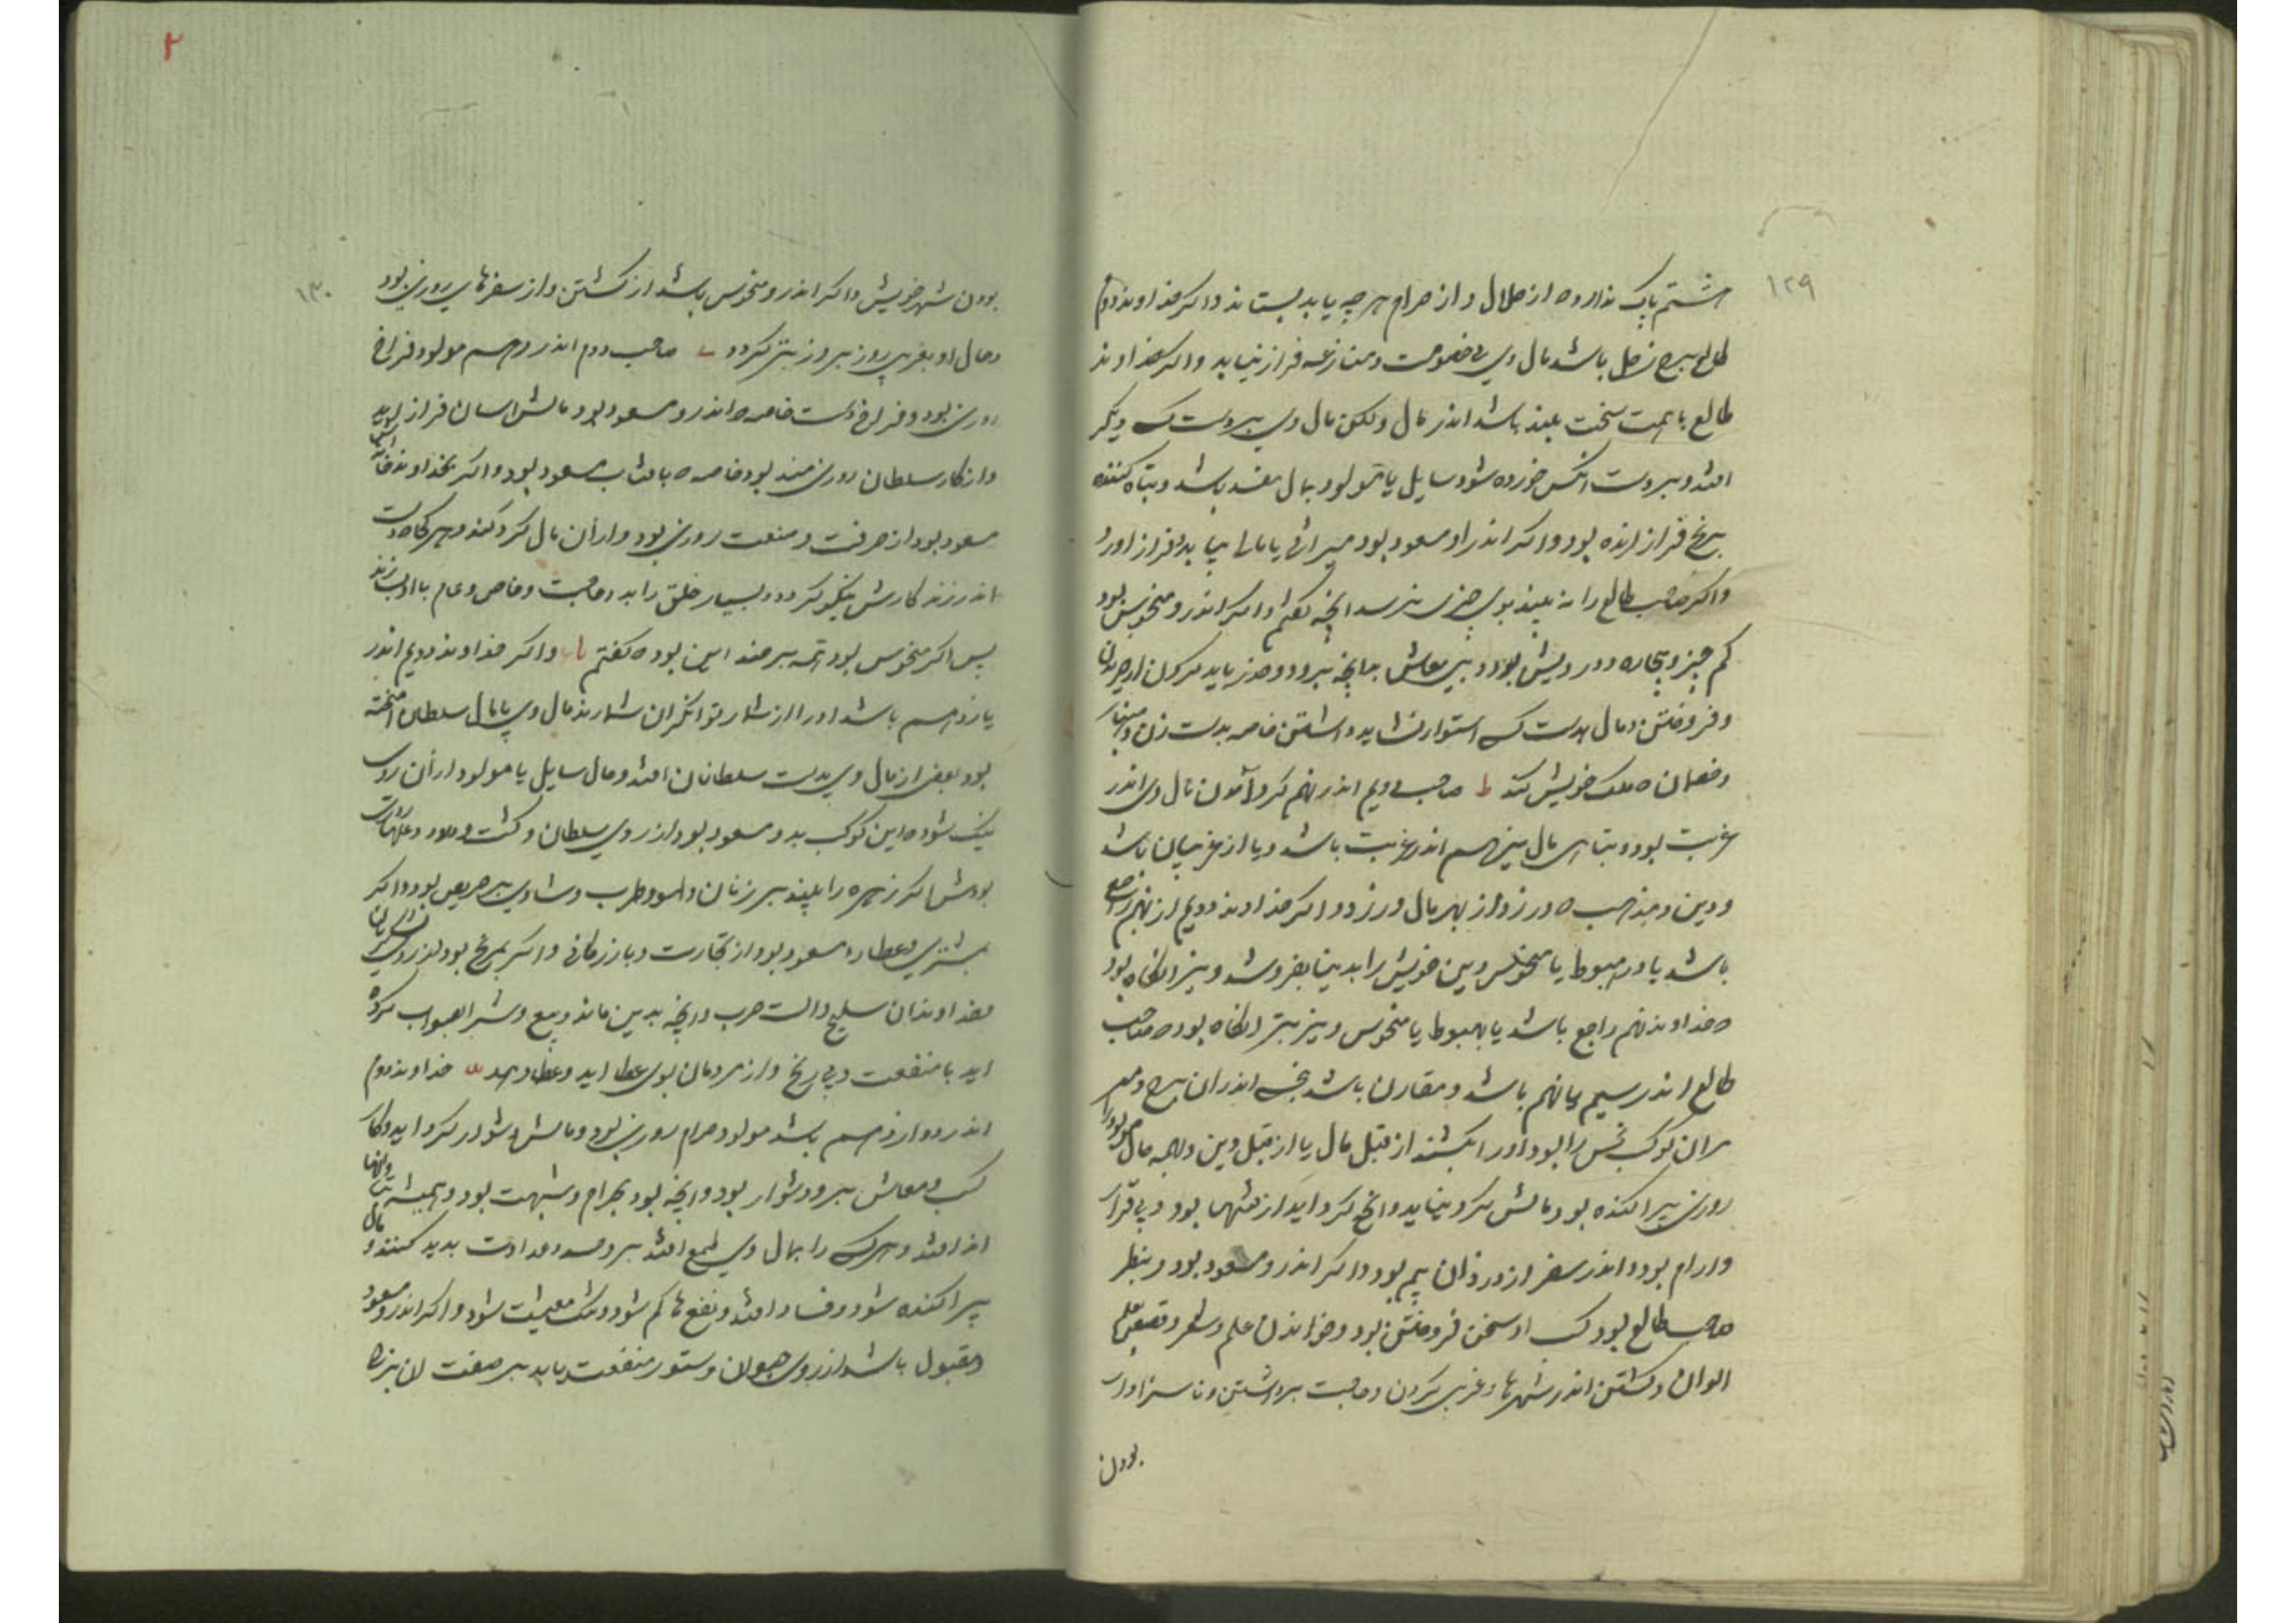 ۱۲۹
هشتم باک ندارد ه از حلال و از حرام هر چه یابد بستاند و اکر خداوند دوم
طالع برج زحل باشد مال وی بی خصومت و منازعه فراز نیاید و اکر خداوند
طالع با همت سخت بلند باشد اندر مال ولکن مال وی بر دست کسی دیکر
افتد و بر دست انکس خورده شود سایل یا مولود بمال مفسد باشد و تباه کننده
برنج فراز ارنده بود و اکر اندر او مسعود بود میراثی یا مالی بیابد و فراز اورد
و اکر صاحب طالع را نه بیند بوی چیزی نرسد انچه کفتم و اکر اندرو منحوس بود
کم چیز و بیچاره و درویش بود و بی معاش بباید کردن از خریدن
و فروختن و مال بدست کسی استوار نشاید داشتن خاصه بدست زن و انباز
و خصمان ملک خویش کند ط صاحب دویم اندر نهم کرد آمدن مال وی اندر
غربت بود و تباهی مال نیز هم اندر غربت باشد و یا از غریبان باشد
و دین و مذهب ه ورزد از بهر مال ورزد و اکر خداوند دویم از نهم راجع
باشد یا در هبوط یا منحوس دین خویش را بدنیا بفروشد و نیز انکاه بود
ه خداوند نهم راجع باشد یا بهبوط یا منحوس و نیز بتر انکاه بود ه صاحب
طالع اندر سیم یا نهم باشد و مقارن باشد نحسی اندران برج و میر
بران کوکب نحس را بود او را بکشند از قبل مال یا از قبل دین و همه حال مولود را
روزی پراکنده بود و مالش کرد نیاید و انچ کرد اید از بود و بی قرار
و ارام بود و اندر سفر از دزدان بیم بود و اکر اندرو مسعود بود و بنظر
صاحب طالع بود کسب او سخن فروختن بود و خواندن علم و شعر و
الوان و کشتن اندر شهرها و غریبی کردن و محبت برداشتن و ناسزاوار
بودن
۲
۱۳۰
بودن شهر خویش و اکر اندرو منحوس باشد از کشتن و از سفرها بی روزی بود
و حال او بغریبی روز بروز بتر کردد ی صاحب دوم اندر دهم مولود فراخ
روزی بود و فراخ دست خاصه ه اندرو مسعود بود مالش اسان فراز اید
و از کار سلطان روزی مند بود خاصه ه بافتاب مسعود بود و اکر بخداوند خانه
مسعود بود از حرفت و صنعت روزی بود و از ان مال کرد کند و هرکاه دست
اندر زند کارش نیکو کردد و بسیار خلق را بدو حاجت و خاص و عام با او بسازند
پس اکر منحوس بود همه بر ضد این بود ه کفتم یا و اکر خداوند دویم اندر
یازدهم باشد او را از شمار توانکران شمارند مال وی بامال سلطان امیخته
بود بعضی از مال وی بدست سلطانان افتد و حال سایل یا مولود از ان روی
نیک شود ه این کوکب بدو مسعود بود از روی سلطان و کشت و
بودش اکر زهره را بیند بر زنان و لهو و طرب و شادی بر حریص بود و اکر
بمشتری و عطارد مسعود بود از تجارت و بازرکانی و اکر بمریخ بود از روی
خداوندان سلیح و الت حرب و انچه بدین ماند و بیع و شرا بصواب کرده
اید با منفعت و بی رنج و از مردمان بوی عطا اید و عطا دهد یب خداوند دوم
اندر دوازدهم باشد مولود حرام روزی بود و مالش دشوار کرد اید و کار
کسب و معاش برو دشوار بود و انچه بود بحرام و شبهت بود و همیشه
اندر افتد و هر کسی را بمال وی طمع افتد برو حسد و عداوت بدید کنند و مال
پراکنده شود و فساد افتد و نفع ها کم شود و تنک معیشت شود و اکر اندرو مسعود
و مقبول باشد از روی حیوان و ستور منفعت یابد بر صفت ان بزه